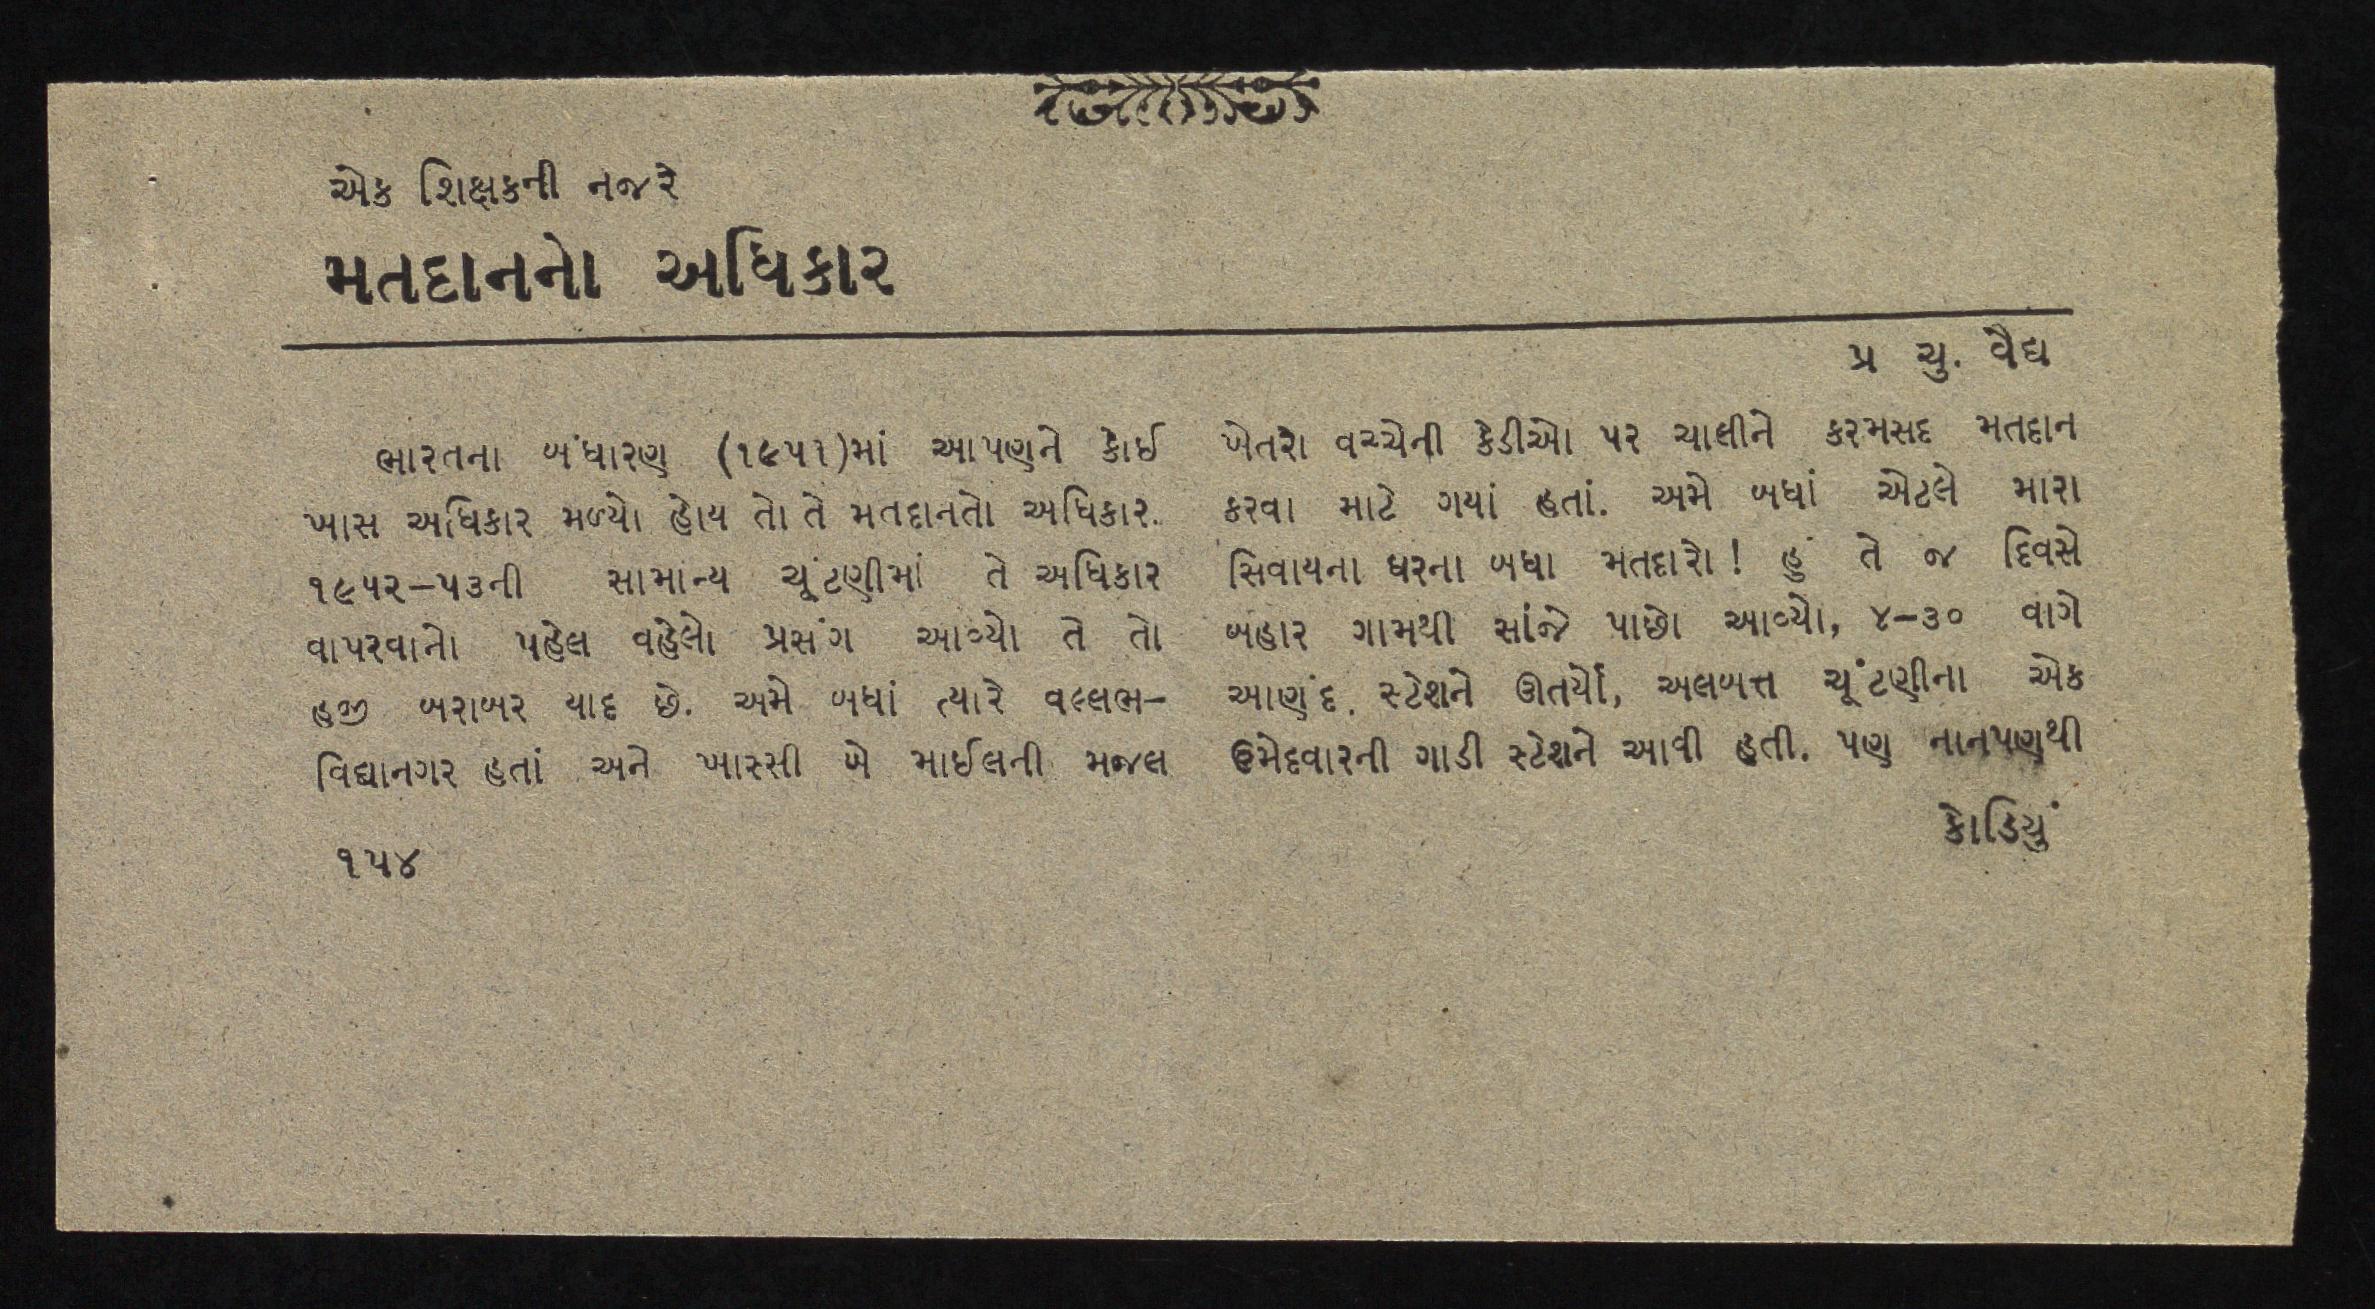 એક શિક્ષકની નજરે
મતદાનનો અધિકાર
પ્ર ચુ. વૈદ્ય
ભારતના બંધારણ (૧૯૫૧)માં આપણને કોઈ
ખાસ અધિકાર મળ્યો હોય તો તે મતદાનતો અધિકાર.
૧૯૫૨–૫૩ની સામાન્ય ચૂંટણીમાં તે અધિકાર
વાપરવાનો પહેલ વહેલો પ્રસંગ આવ્યો તે તો
હજી બરાબર યાદ છે. અમે બધાં ત્યારે વલ્લભ–
વિદ્યાનગર હતાં અને ખાસ્સી બે માઈલની મજલ
ખેતરો વચ્ચેની કેડીઓ પર ચાલીને કરમસદ મતદાન
કરવા માટે ગયાં હતાં. અમે બધાં એટલે મારા
સિવાયના ઘરના બધા મતદારો! હું તે જ દિવસે
બહાર ગામથી સાંજે પાછો આવ્યો, ૪–૩૦ વાગે
આણંદ. સ્ટેશને ઊતર્યો, અલબત્ત ચૂંટણીના એક
ઉમેદવારની ગાડી સ્ટેશને આવી હતી. પણ નાનપણથી
કોડિયું
૧૫૪